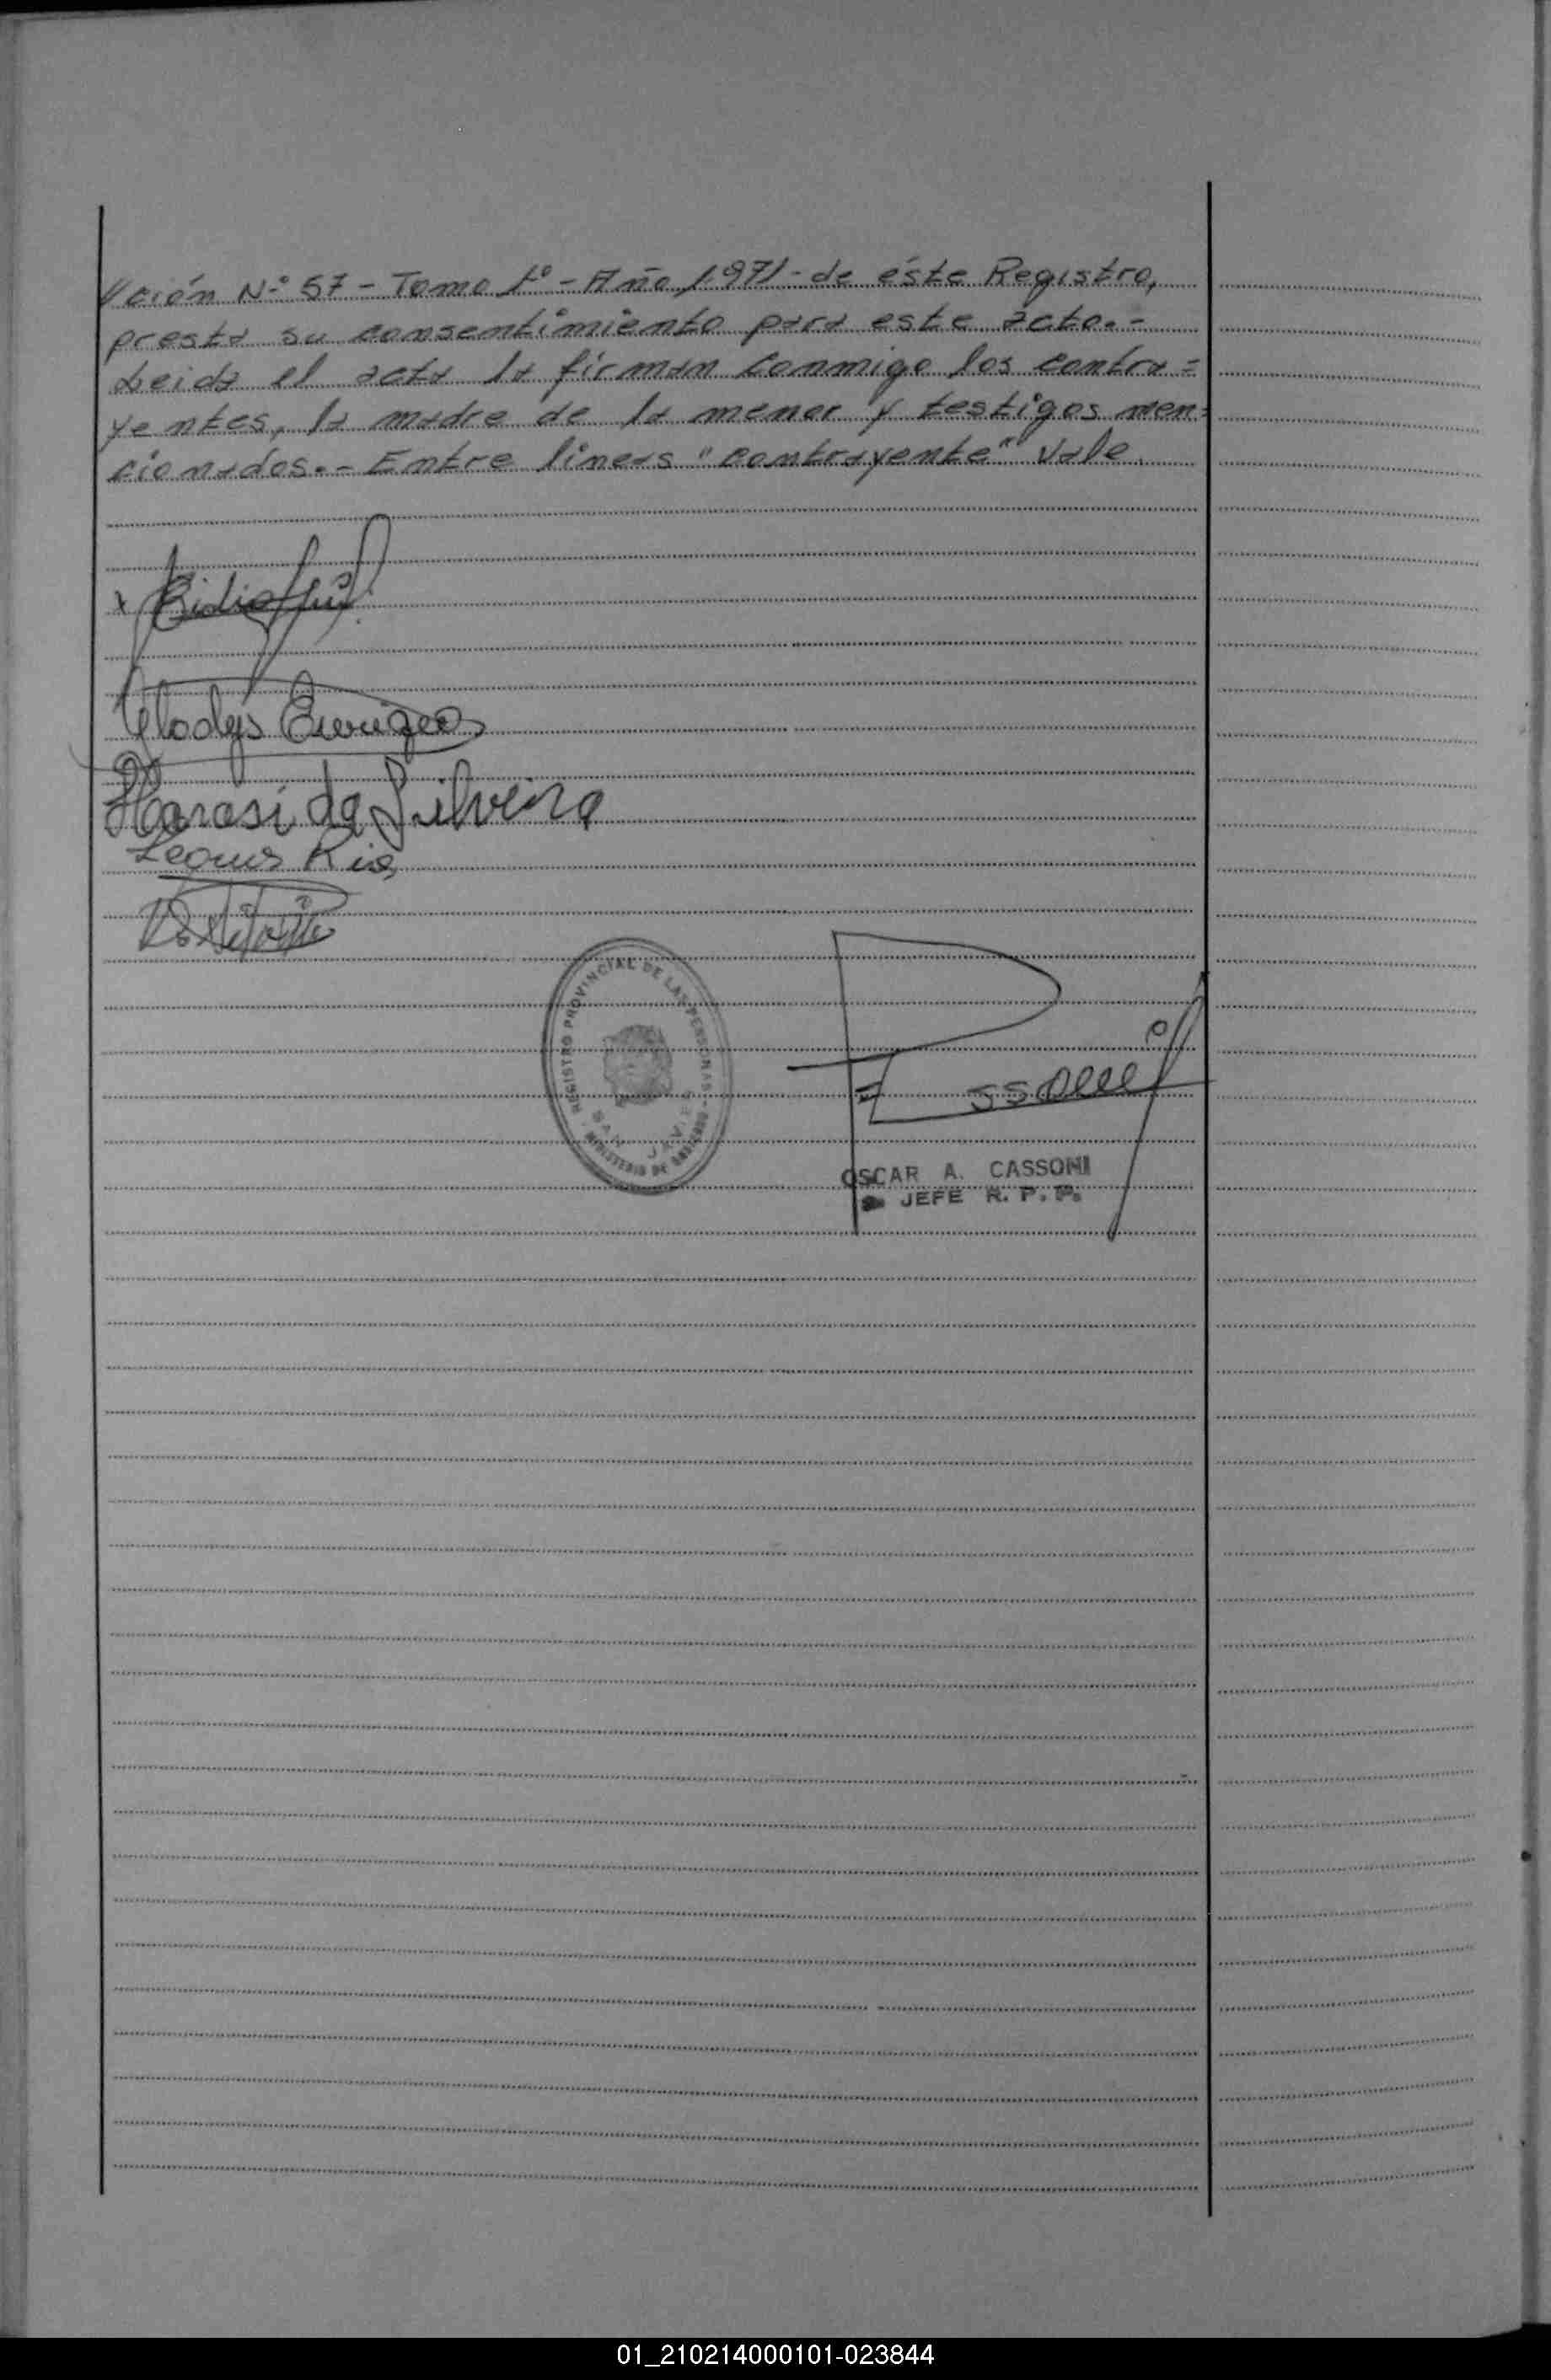 ción Nº 57 - Tomo 1º - Año 1971 - de éste Registro,
presta su consentimiento para este acto.-
Leida el acta la firman conmigo los contra=
yentes, la madre de la menor y testigos men=
cionados.- Entre lineas "contrayente" Vale.
Gladys Enriquez
da Silveira
REGISTRO PROVINCIAL DE LAS PERSONAS - MINISTERIO DE GOBIERNO
SAN JAVIER
OSCAR A. CASSONI
JEFE R. P. P.
01_210214000101-023844